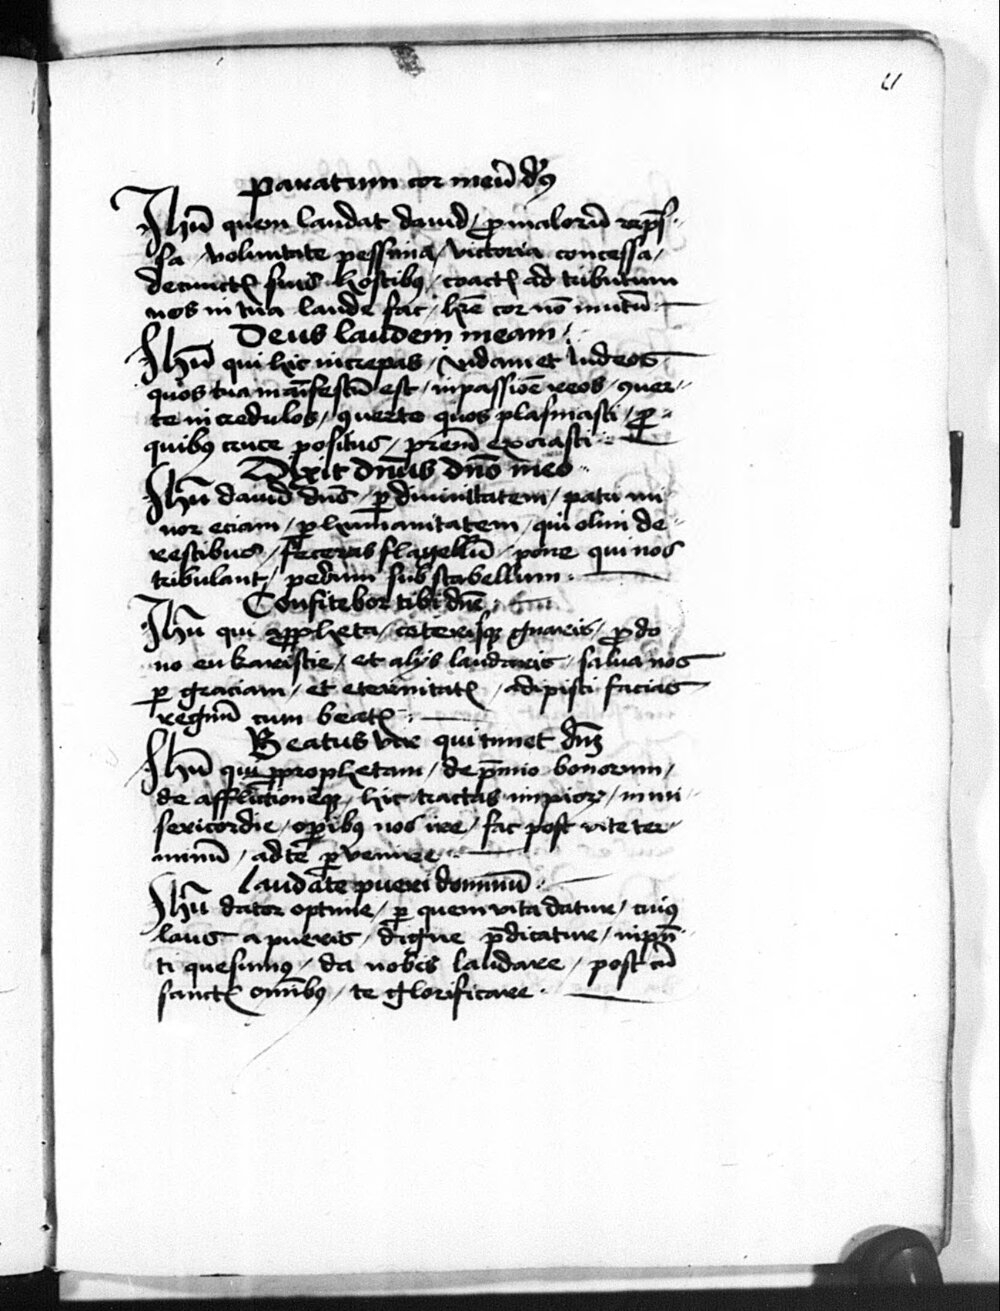 Paratum cor meū dꝰ
Jhū quem laudat dauid / ꝓ malorū rep̄ſ
ſa / voluntate peſſima / victoria conceſſa /
deuictꝭ ſuis hoſtibꝰ / coactꝭ ad tributum
nos in tua laude fac / hr̄e cor nō mutū
Deus laudem meam
Jhū qui hic increpas / Iudam et Iudeos
quos tua māifeſtū eſt / in paſſioē reos / ꝯuer
te incredulos / ꝯuerte quos plaſmaſti / ꝓ
quibꝰ cruce poſitus / pr̄em exoraſti
Dixit dn̄us dn̄o meo
Jhū dauid dn̄s / ꝑ diuinitatem / patri mi
nor eciam / ꝑ humanitatem / qui olim de
reſtibus / feceras flagellū / pone qui nos
tribulant / pedum ſub ſtabellum
Confitebor tibi dn̄e
Jhū qui a ꝓpheta / ceteriſqꝫ gnaris / ꝓ do
no eukariſtie / et alijs laudaris / ſalua nos
ꝑ graciam / et eternitatꝭ / adipiſci facias
regnū cum beatꝭ
Beatus vir qui timet dn̄ꝫ
Jhū qui ꝑ prophetam / de p̄mio bonorum /
de afflictioneqꝫ / hic tractas impioꝝ / in mi
ſericordie / oꝑibꝰ nos ire / fac poſt vite ter
minū / ad te ꝑuenire
Laudate pueri dominū
Jhū dator optime / ꝑ quem vita datur / cuiꝰ
laus a pueris / digne p̄dicatur / in p̄n
ti queſumꝰ / da nobis laudare / poſt cū
ſanctꝭ oīnibꝰ / te glorificare